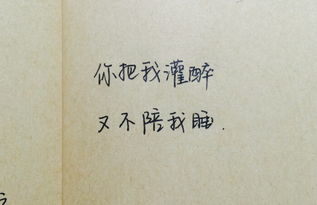 你把我灌醉
又不陪我睡.